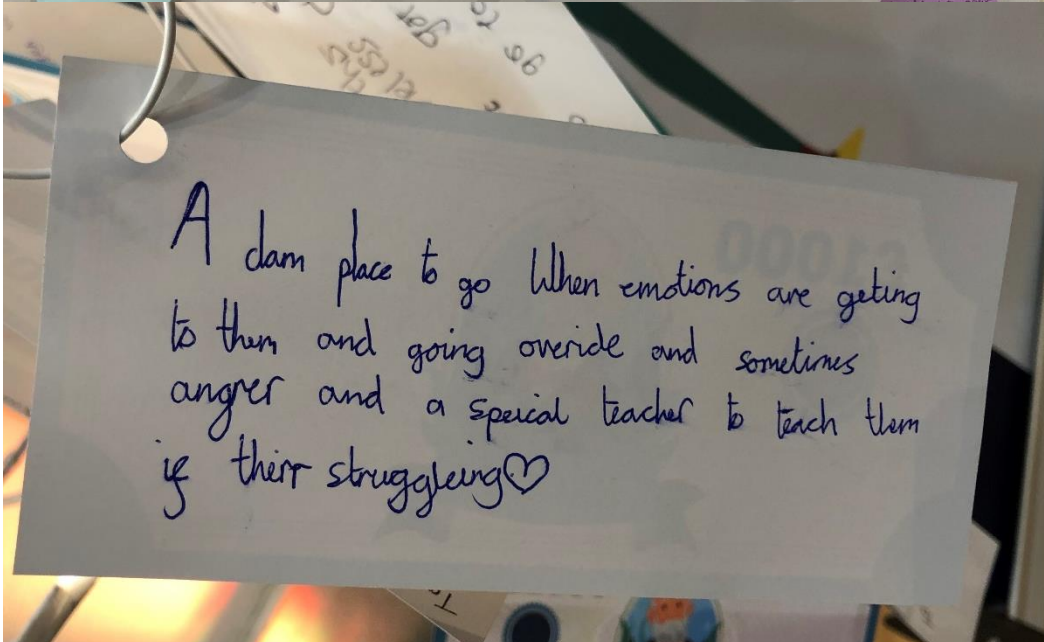 A clam place to go When emotions are geting
to them and going overide and sometimes
angrer and a speical teacher to teach them
if their struggleing♡
£1000